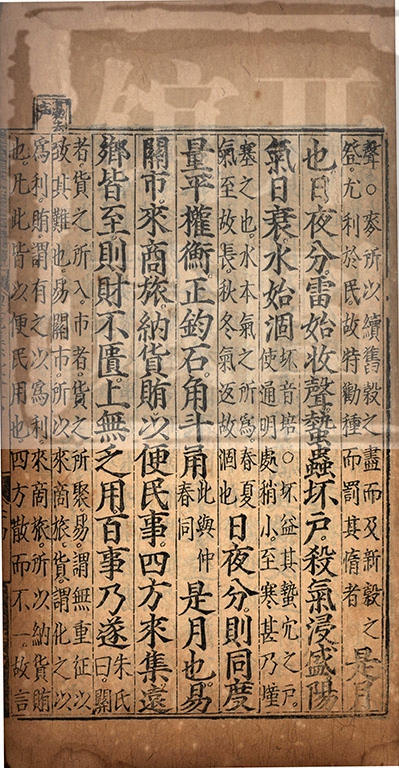 聲○麥所以續舊穀之盡而及新穀之
登尤利於民故特勸種而罰其惰者
是月
也日夜分雷始收聲蟄蟲坏戶殺氣浸盛陽
氣日衰水始涸
坏音培○坏益其蟄穴之戶
使通明處稍小至寒甚乃墐
塞之也水本氣之所爲春夏
氣至故長秋冬氣返故涸也
日夜分則同度
量平權衡正鈞石角斗甬
此與仲
春同
是月也易
關市來商旅納貨賄以便民事四方來集遠
鄉皆至則財不匱上無乏用百事乃遂
朱氏
曰關
者貨之所入市者貨之所聚易謂無重征以
致其難也易關市所以來商旅貨謂化之以
爲利賄謂有之以爲利來商旅所以納貨賄
也凡此皆以便民用也四方散而不一故言